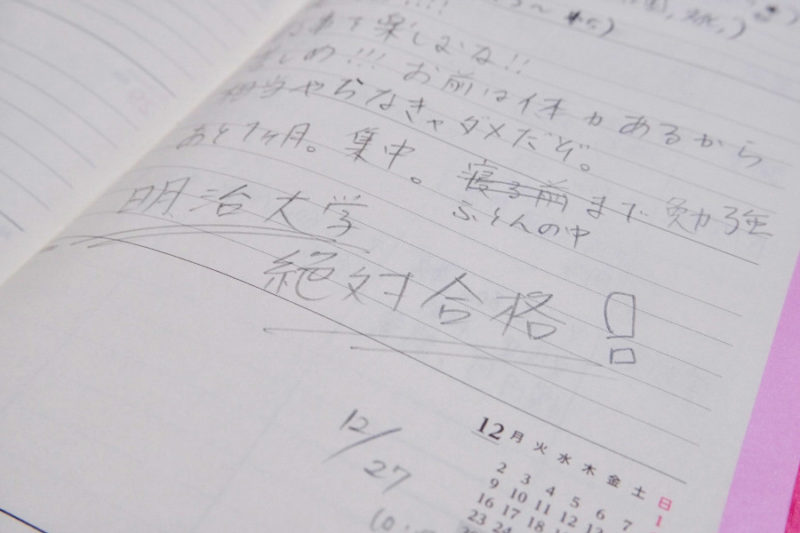 楽しむな!!
!!! お前は体力あるから
相当やらなきゃダメだぞ。
あと1ヶ月。集中。寝る前まで勉強
ふとんの中
明治大学
絶対合格!
12/27
12 月 火 水 木 金 土 日
1
2 3 4 5 6 7
9 10 11 12 13
16 17 18
23 24